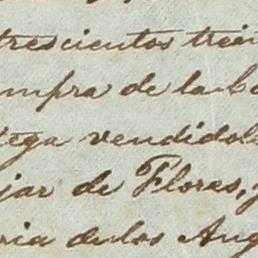 trescientos trein
ompra de la Ca
tega vendidola
jar de Flores, y
ria de los Ang